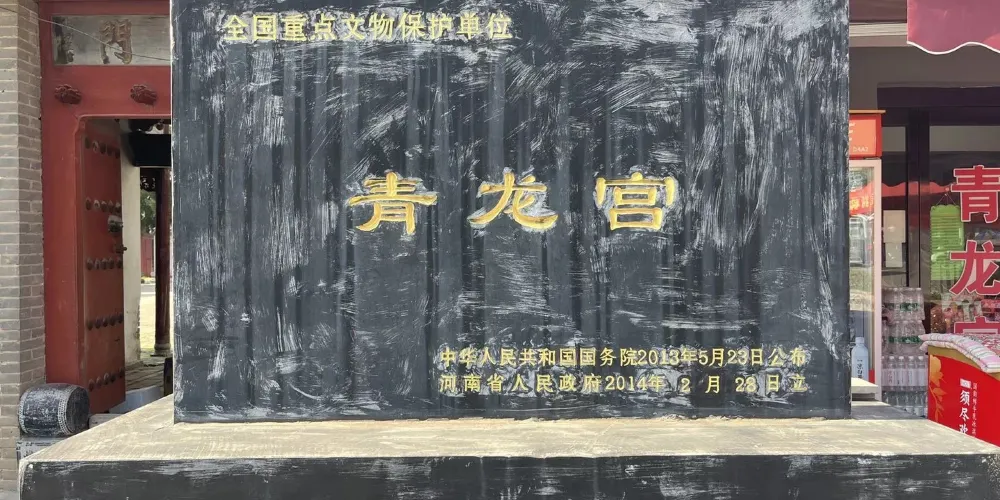 全国重点文物保护单位
青龙宫
中华人民共和国国务院2013年5月23日公布
河南省人民政府2014年2月28日立
門
青龙宫
须尽欢